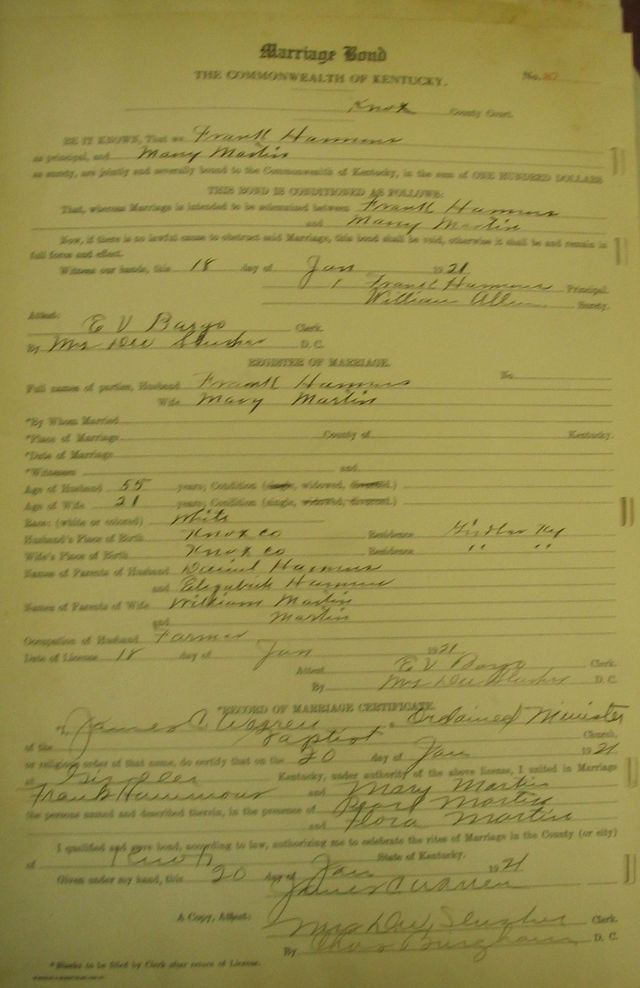 Marriage Bond
THE COMMONWEALTH OF KENTUCKY. No.
Knox County Court.
BE IT KNOWN, That we Frank Hammons
as principal, and Mary Martin
as surety, are jointly and severally bound to the Commonwealth of Kentucky, in the sum of ONE HUNDRED DOLLARS
THIS BOND IS CONDITIONED AS FOLLOWS:
That, whereas Marriage is intended to be solemnized between Frank Hammons
and Mary Martin
Now, if there is no lawful cause to obstruct said Marriage, this bond shall be void, otherwise it shall be and remain in
full force and effect.
Witness our hands, this 18 day of Jan 1921
Frank Hammons Principal.
William Allen Surety.
Attest:
E V Bargo Clerk.
By Mrs Dee Slusher D. C.
REGISTER OF MARRIAGE.
Full names of parties, Husband Frank Hammons No.
Wife Mary Martin
*By Whom Married
*Place of Marriage County of Kentucky.
*Date of Marriage
*Witnesses and
Age of Husband 55 years; Condition (single, widowed, divorced.)
Age of Wife 21 years; Condition (single, widowed, divorced.)
Race: (white or colored) White
Husband's Place of Birth Knox Co Residence Girdler Ky
Wife's Place of Birth Knox Co Residence " "
Names of Parents of Husband Daniel Hammons
and Elizabeth Hammons
Names of Parents of Wife William Martin
and Martin
Occupation of Husband Farmer
Date of License 18 day of Jan 1921
Attest E V Bargo Clerk.
By Mrs Dee Slusher D. C.
*RECORD OF MARRIAGE CERTIFICATE.
I, James C Warren a Ordained Minister
of the Baptist Church,
or religious order of that name, do certify that on the 20 day of Jan 1921
at Girdler Kentucky, under authority of the above license, I united in Marriage
Frank Hammons and Mary Martin
the persons named and described therein, in the presence of Pearl Martin
and Flora Martin
I qualified and gave bond, according to law, authorizing me to celebrate the rites of Marriage in the County (or city)
of Knox State of Kentucky.
Given under my hand, this 20 day of Jan 1921
James C Warren
A Copy, Attest: Mrs Dee Slusher Clerk.
By D. C.
*Blanks to be filled by Clerk after return of License.